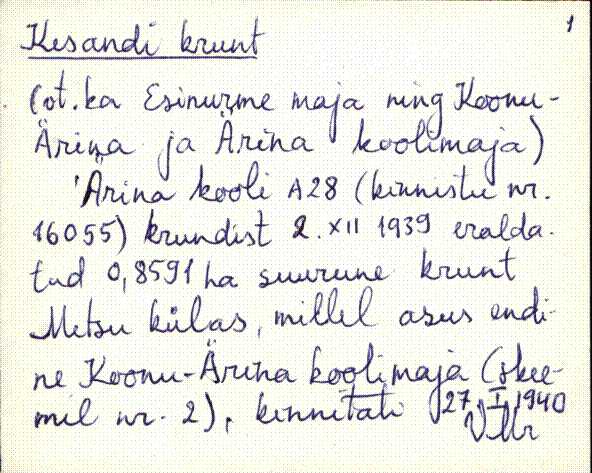 1
Kesandi krunt
(vt. ka Esinurme maja ning Koonu-
Ärina ja Ärina koolimaja)
Ärina kooli A28 (kinnistu nr.
16055) krundist 2. XII 1939 eralda-
tud 0,8591 ha suurune krunt
Metsu külas, millel asus endi-
ne Koonu-Ärina koolimaja (skee-
mil nr. 2), kinnitati 27. I 1940